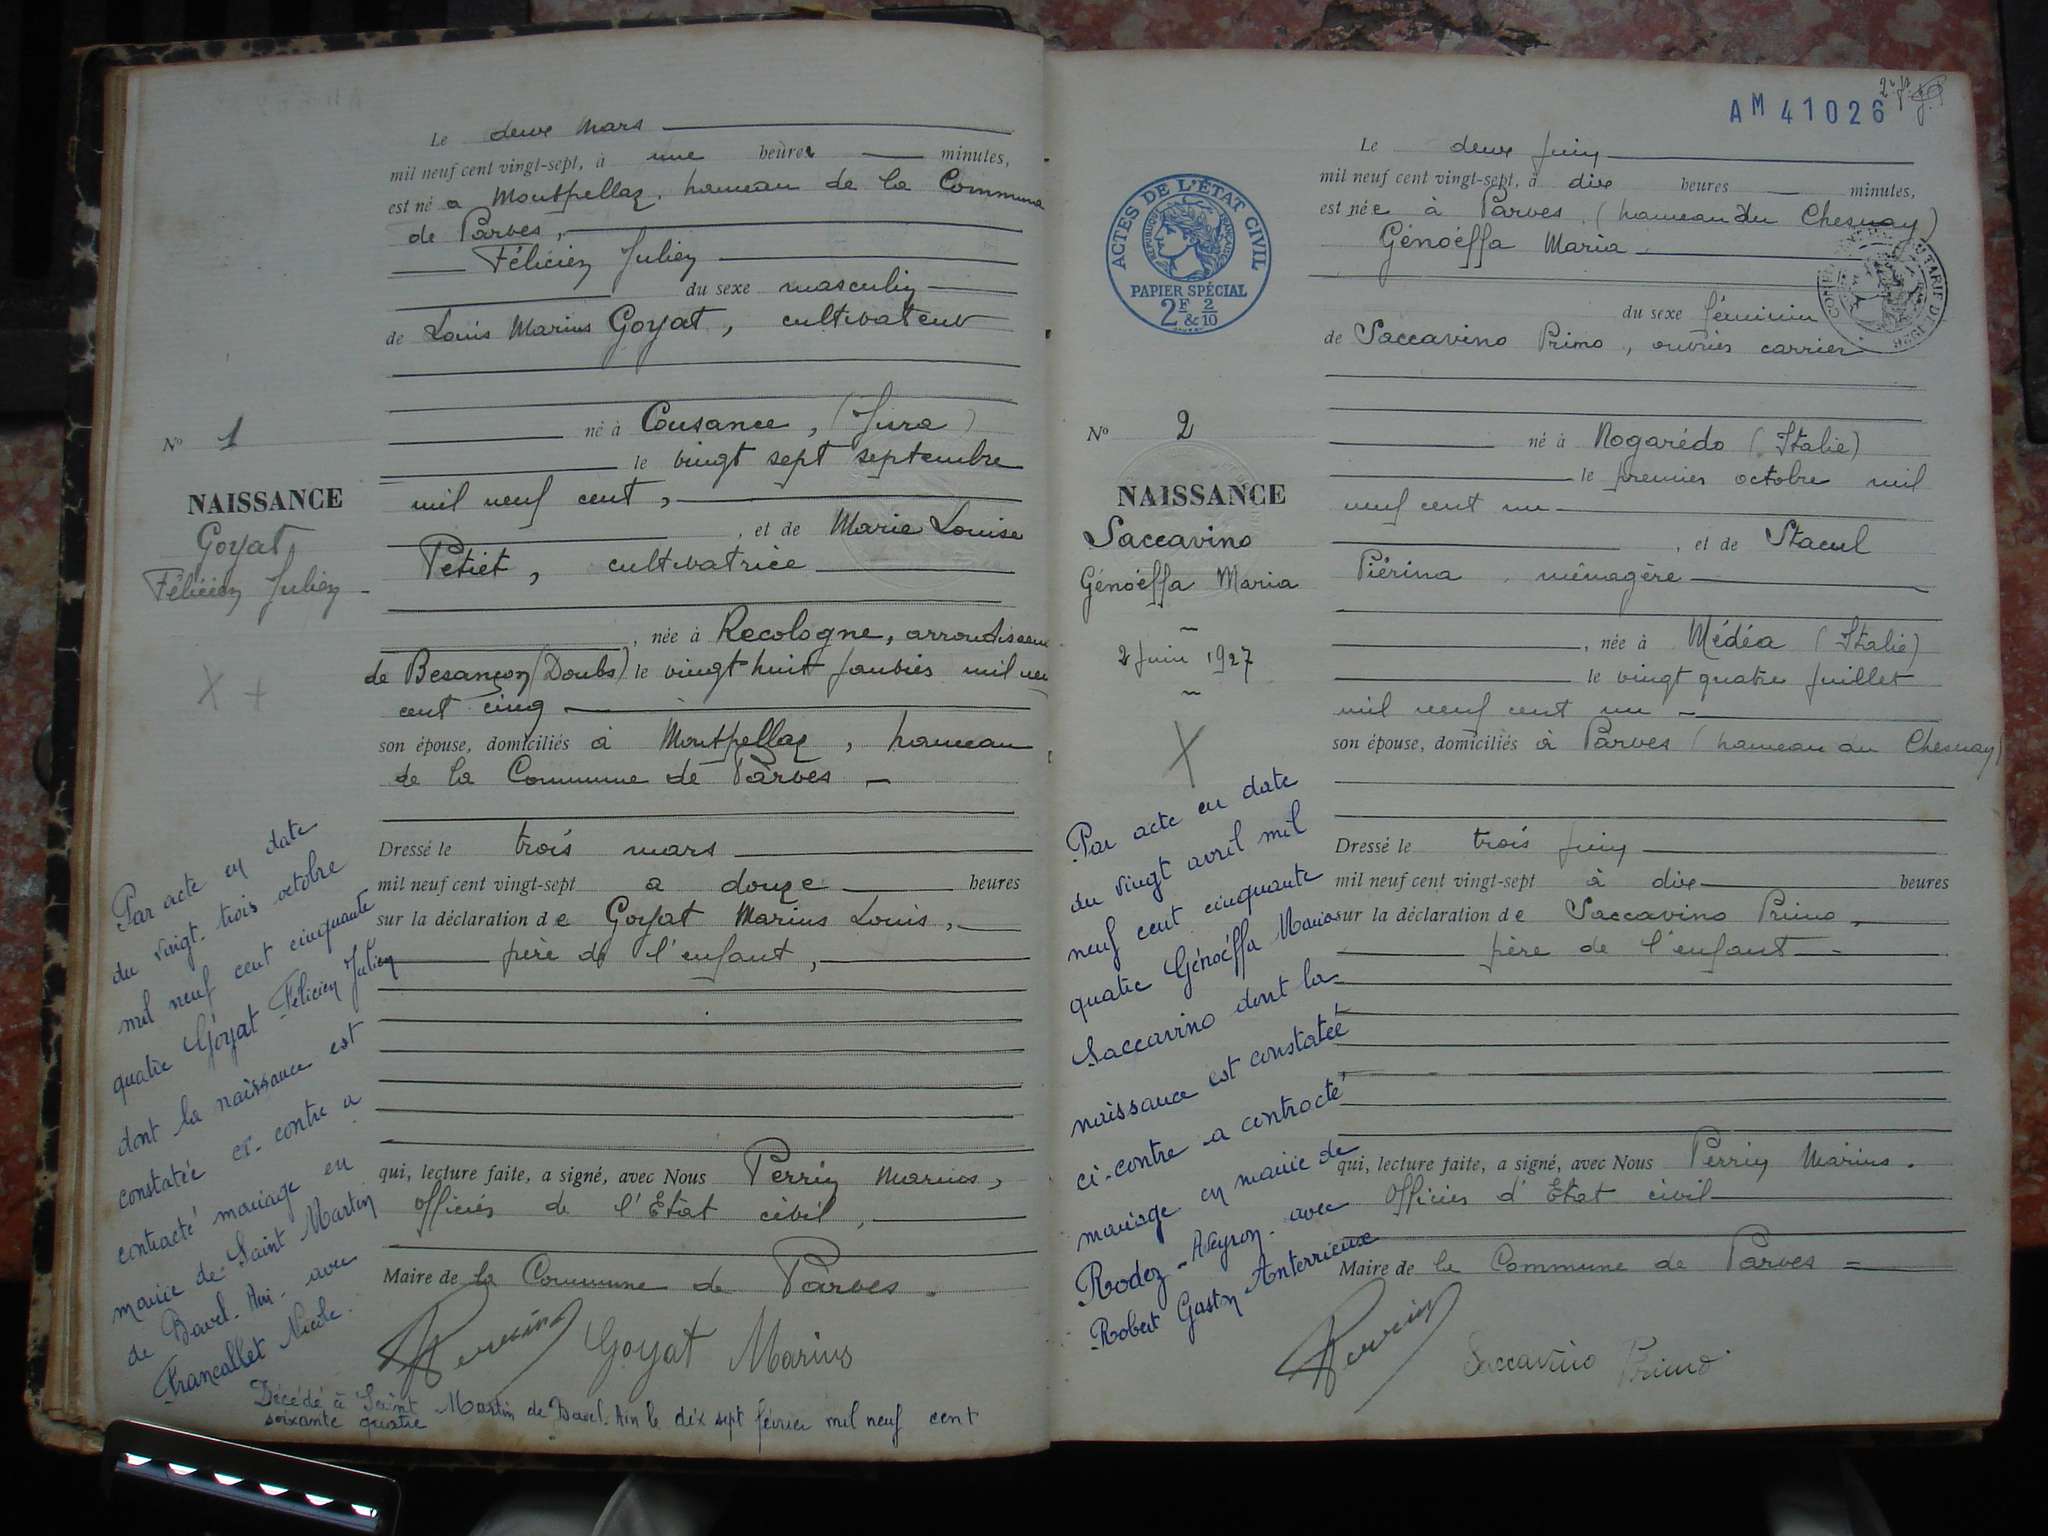 Le deux mars
mil neuf cent vingt-sept, à une heure minutes,
est né à Montpellaz, hameau de la Commune
de Parves,
Félicien Julien
du sexe masculin
de Louis Marius Goyat, cultivateur
né à Cousance, (Jura)
le vingt sept septembre
mil neuf cent,
, et de Marie Louise
Petiet, cultivatrice
, née à Recologne, arrondissem
de Besançon (Doubs) le vingt huit janvier mil neu
cent cinq
son épouse, domiciliés à Montpellaz, hameau
de la Commune de Parves
Dressé le trois mars
mil neuf cent vingt-sept à douze heures
sur la déclaration de Goyat Marius Louis,
père de l'enfant,
qui, lecture faite, a signé, avec Nous Perrin Marius,
officier de l'Etat civil,
Maire de la Commune de Parves.
Goyat Marius
No 1
NAISSANCE
Goyat
Félicien Julien
Par acte en date
du vingt-trois octobre
mil neuf cent cinquante
quatre Goyat Félicien Julien
dont la naissance est
constatée ci-contre a
contracté mariage en
mairie de Saint Martin
de Bavel-Ain-avec
Françallet Nicole.
Décédé à Saint Martin de Bavel-Ain le dix sept février mil neuf cent
soixante quatre
AM 41026
Le deux juin
mil neuf cent vingt-sept, à dix heures minutes,
est née à Parves (hameau du Chesnay)
Génoéffa Maria
du sexe féminin
de Saccavino Primo, ouvrier carrier
né à Nogarédo (Italie)
le premier octobre mil
neuf cent un
, et de Stacul
Piérina, ménagère
, née à Médéa (Italie)
le vingt quatre juillet
mil neuf cent un
son épouse, domiciliés à Parves (hameau du Chesnay)
Dressé le trois juin
mil neuf cent vingt-sept à dix heures
sur la déclaration de Saccavino Primo,
père de l'enfant
qui, lecture faite, a signé, avec Nous Perrin Marius.
Officier d'Etat civil
Maire de la Commune de Parves
Saccavino Primo
ACTES DE L'ÉTAT CIVIL
RÉPUBLIQUE FRANÇAISE
PAPIER SPÉCIAL
2F & 2/10
No 2
NAISSANCE
Saccavino
Génoéffa Maria
2 Juin 1927
Par acte en date
du vingt avril mil
neuf cent cinquante
quatre Génoéffa Maria
Saccavino dont la
naissance est constatée
ci-contre a contracté
mariage en mairie de
Rodez-Aveyron-avec
Robert Gaston Anterrieux